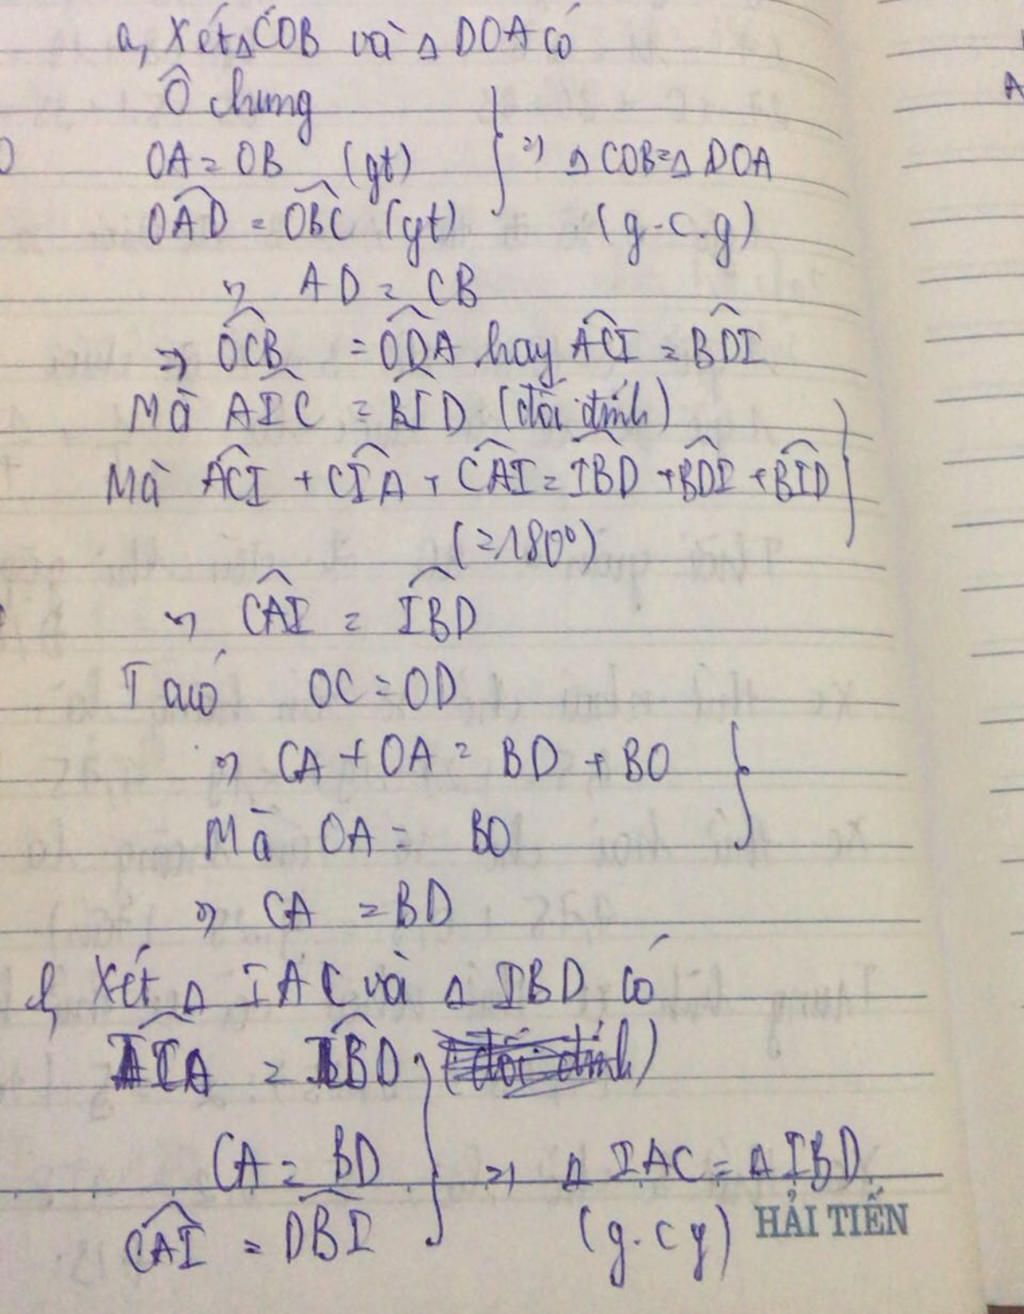 a, Xét △COB và △DOA có
Ô chung
OA = OB (gt) => △COB = △DOA
OAD = OBC (gt) (g.c.g)
=> AD = CB
=> OCB = ODA hay ACI = BDI
Mà AIC = BID (đối đỉnh)
Mà ACI + CIA + CAI = IBD + BDI + BID
(=180°)
=> CAI = IBD
Ta có OC = OD
=> CA + OA = BD + BO
Mà OA = BO
=> CA = BD
b, Xét △ IAC và △ IBD có
= (đối đỉnh)
CA = BD => △ IAC = △ IBD
CAI = DBI (g.c.g)
HẢI TIẾN